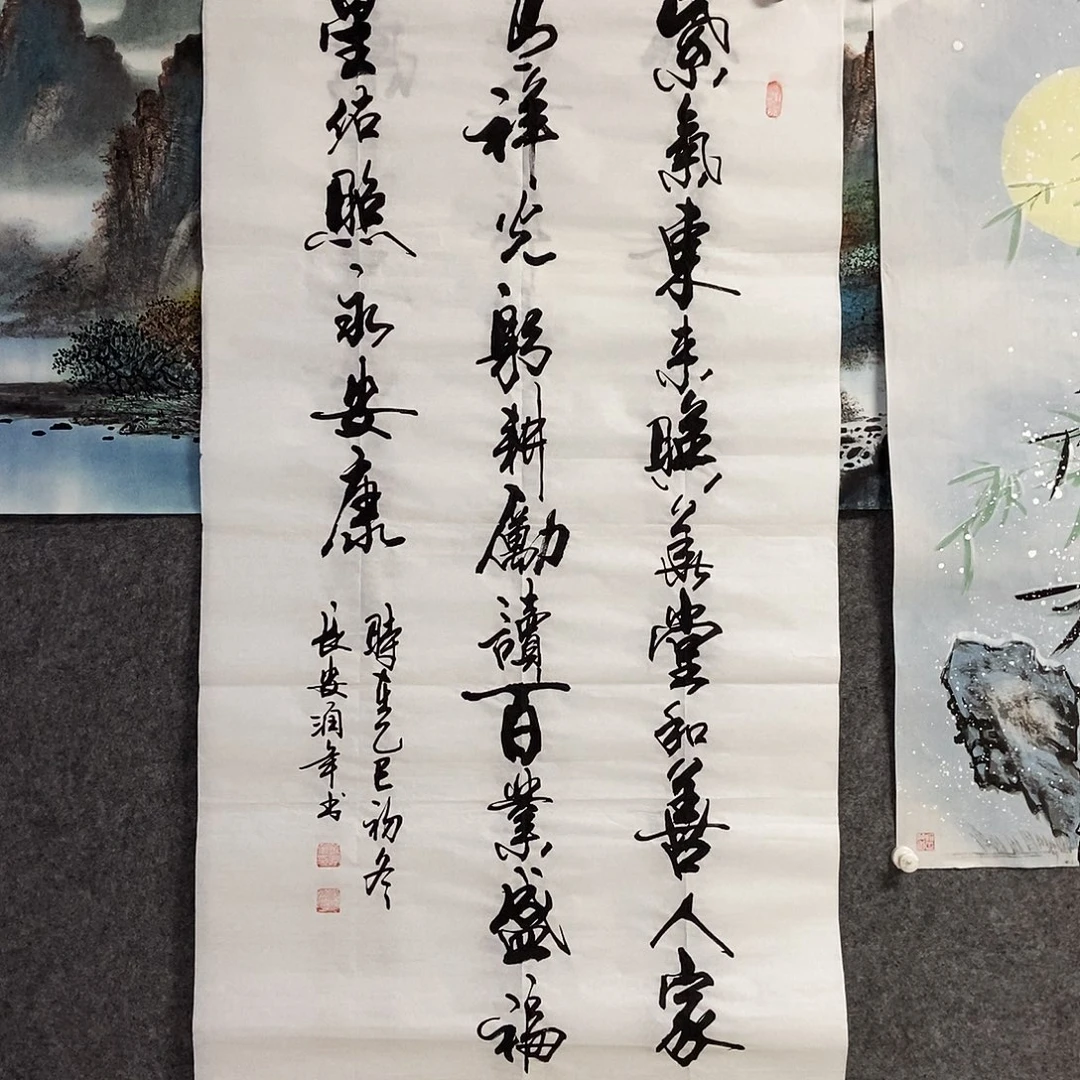 紫氣東来照華堂和善人家
祥光躬耕勵讀百業盛福
星佑照永安康
時在乙巳初冬
長安润年书